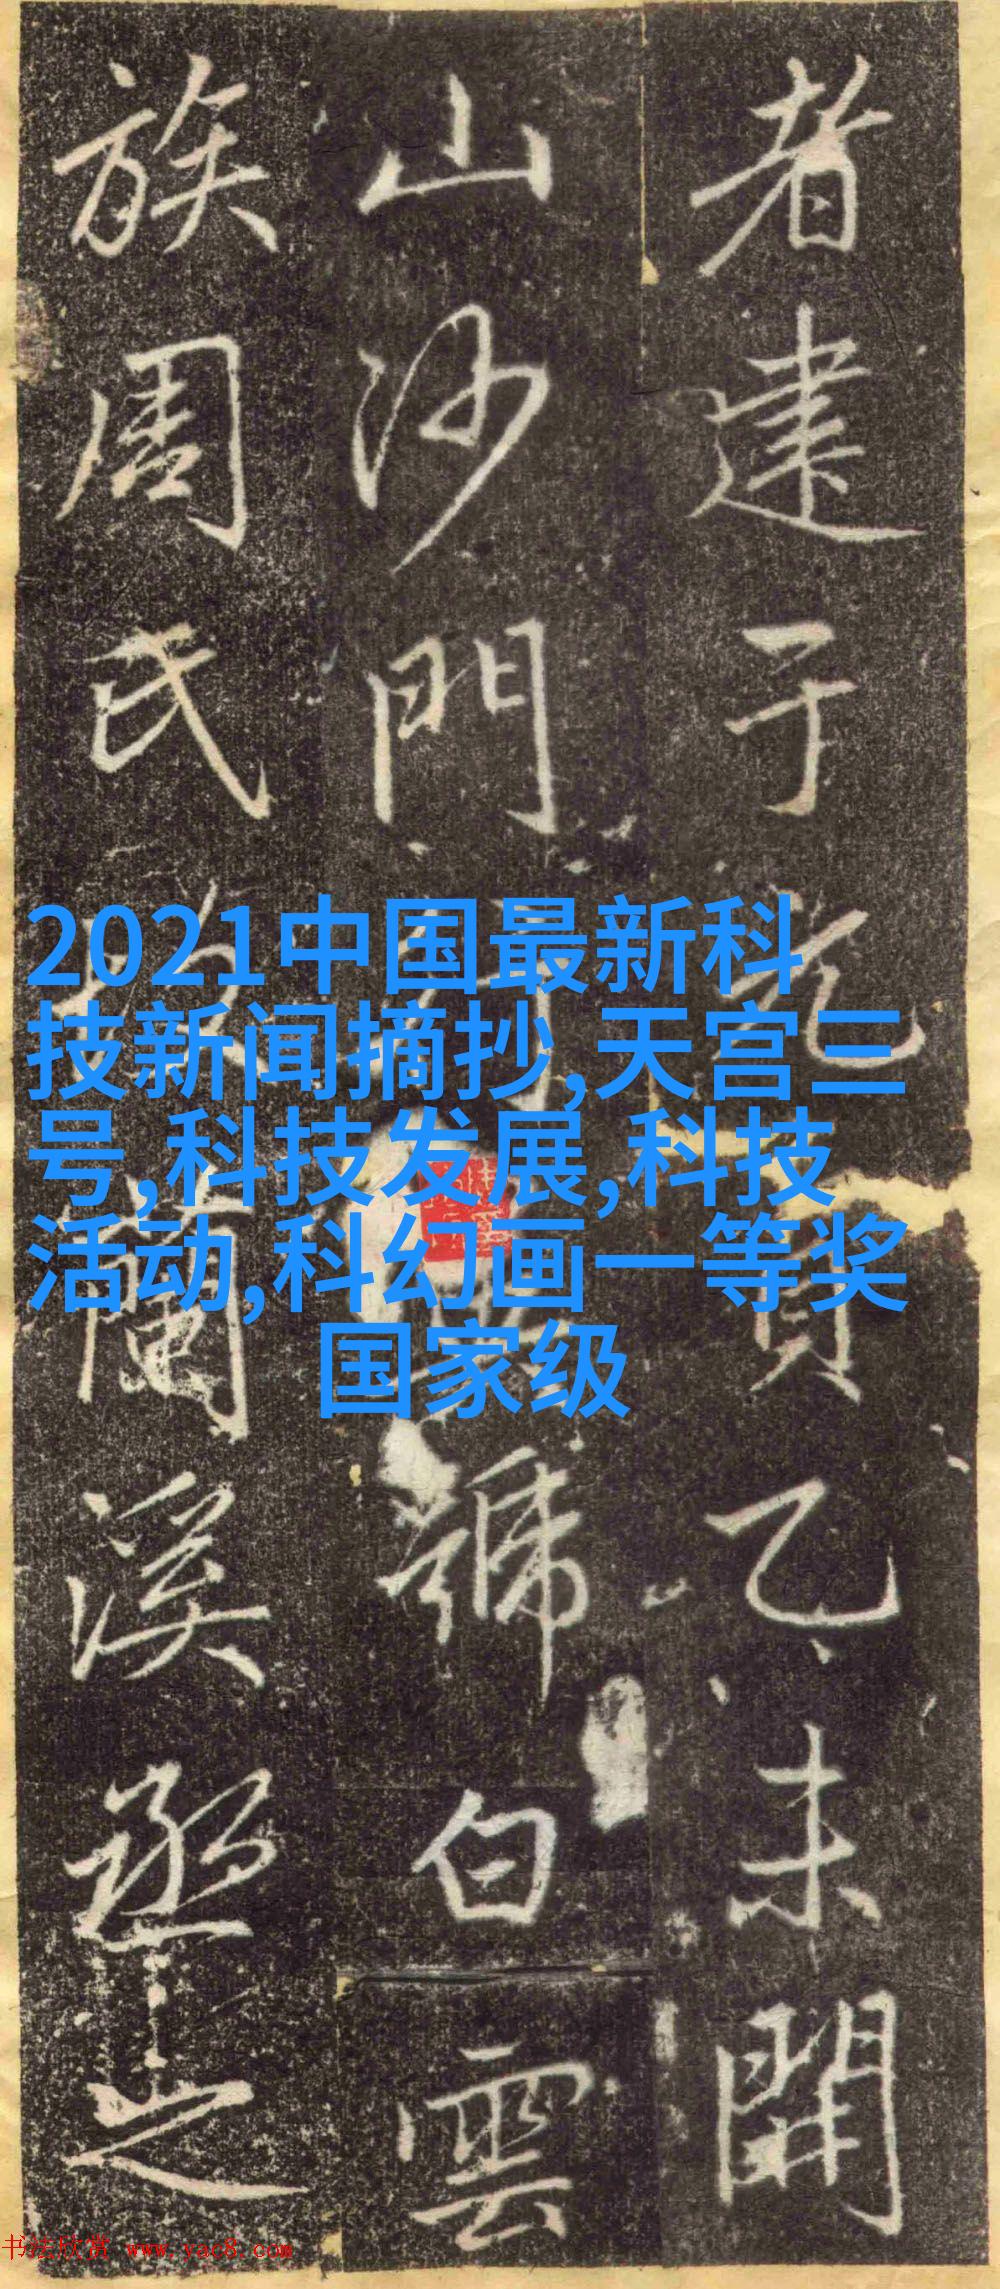 者建于元
貞乙未開
山沙門
號白雲
族周氏
蘭溪丞之
2021中国最新科
技新闻摘抄,天宫三
号,科技发展,科技
活动,科幻画一等奖
国家级
书法欣赏 www.yac8.com